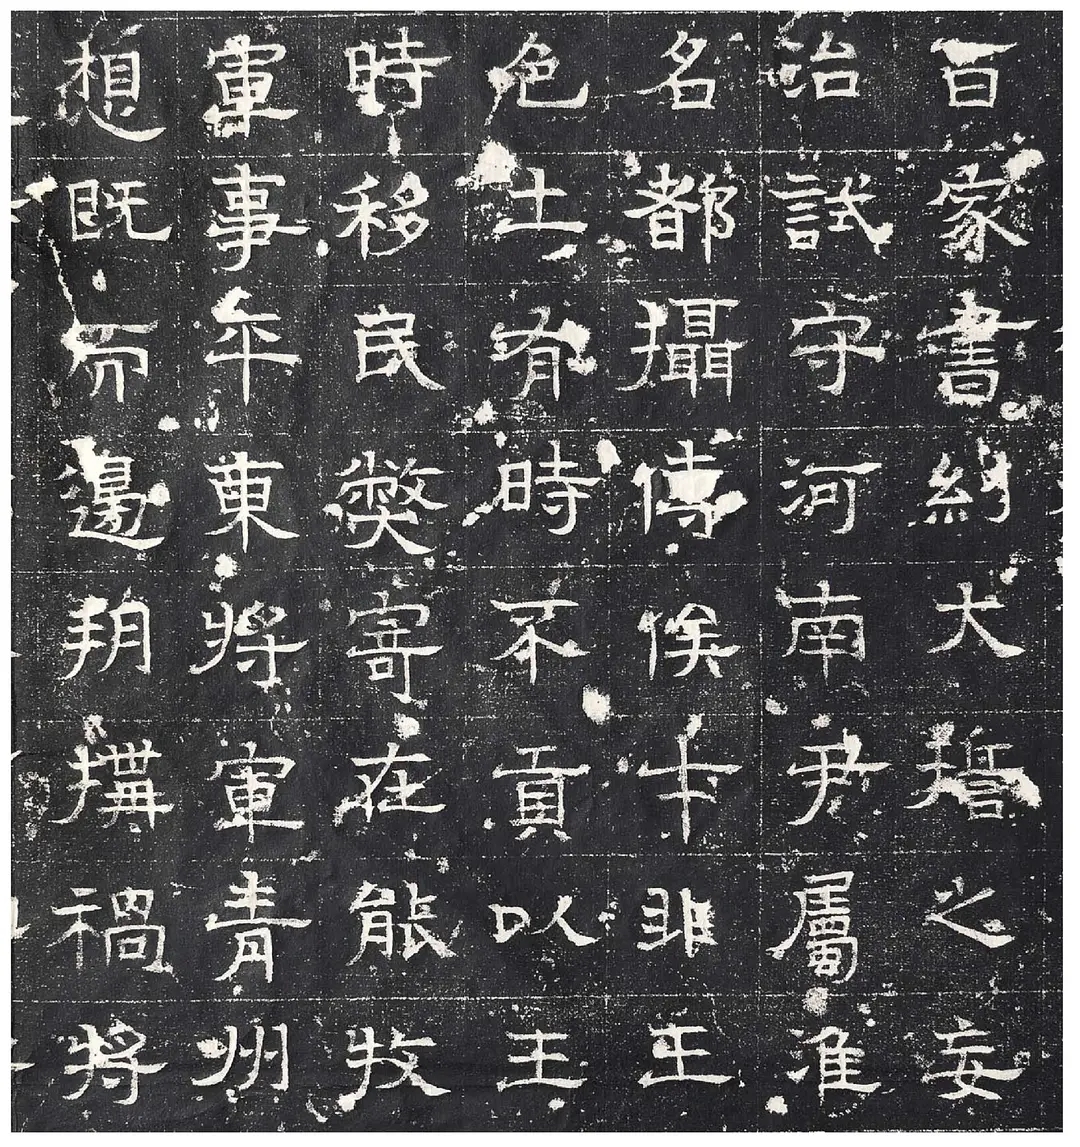 百家書糾大誓之妄
治試守河南尹屬淮
名都攝傅俟才非正
色土有時不貢以王
時移民弊寄在能牧
軍事平東將軍青州
想既而邊朔構禍將